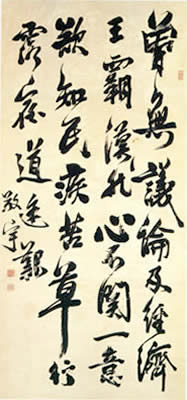 曾無議論及經濟
王霸漠然心不關一意
欲知民疾苦草行
露宿道途艱
敬宇